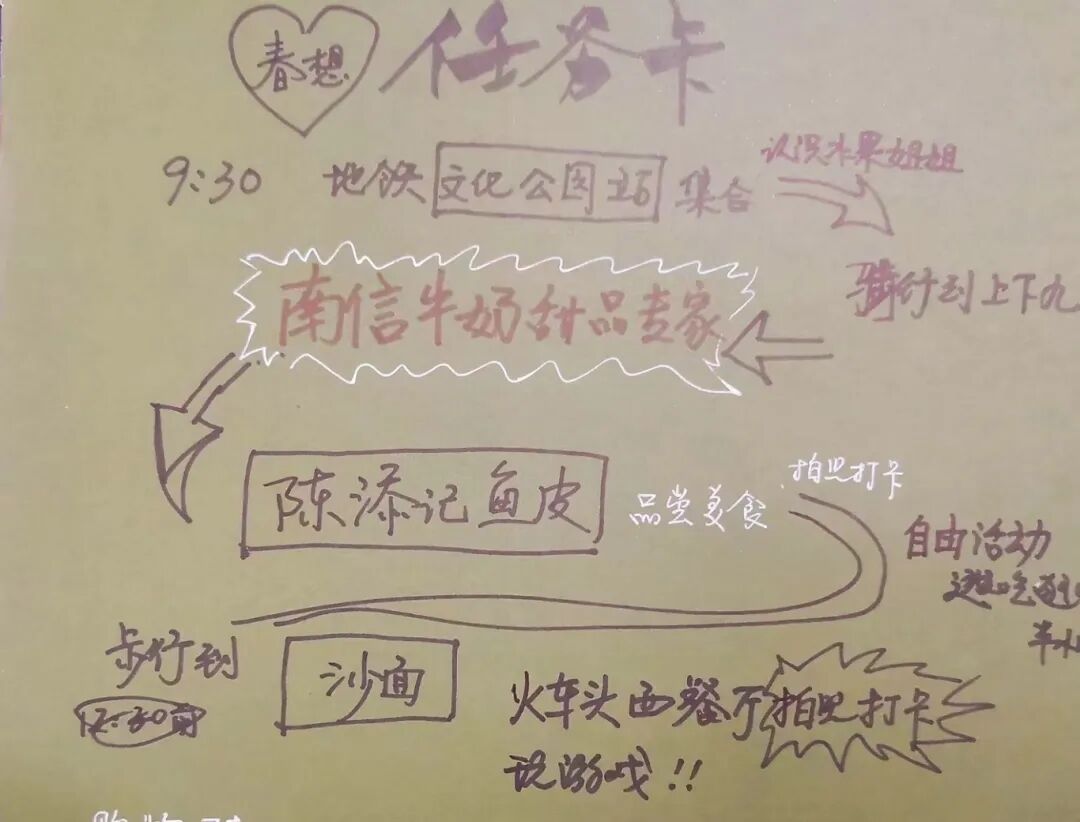 春想
任务卡
9:30 地铁 文化公园站 集合
认识水果姐姐
骑行到上下九
南信牛奶甜品专家
陈添记鱼皮
品尝美食
拍照打卡
自由活动
边吃逛
步行到
沙面
12:30前
火车头西餐厅拍照打卡
玩游戏!!